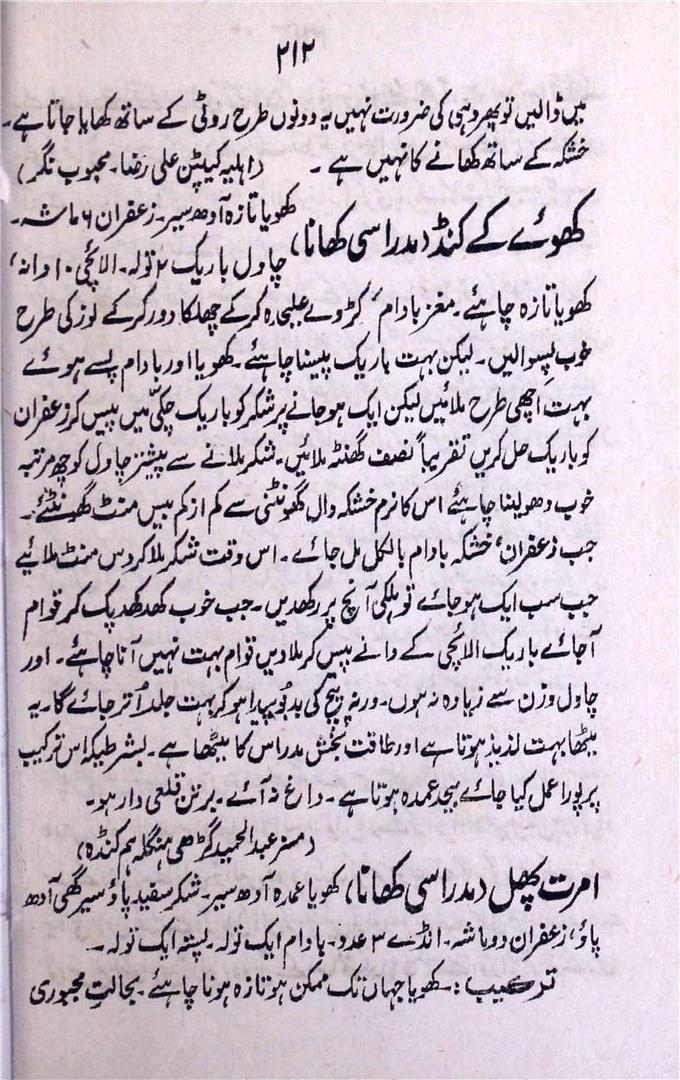 ۲۱۲
میں ڈالیں تو پھر دہی کی ضرورت نہیں یہ دونوں طرح روٹی کے ساتھ کھایا جاتا ہے۔
خشکہ کے ساتھ کھانے کا نہیں ہے ۔ (اہلیہ کیپٹن علی رضا۔ محبوب نگر)
کھوئے کے کنڈ (مدراسی کھانا) کھویا تازہ آدھ سیر۔ زعفران ۶ ماشہ۔
چاول باریک ۲ تولہ۔ الائچی ۱۰ دانہ،
کھویا تازہ چاہئے۔ مغز بادام، کڑوے علیحدہ کر کے چھلکا دور کر کے لوز کی طرح
خوب پسوالیں۔ لیکن بہت باریک پیسنا چاہئے۔ کھویا اور بادام پسے ہوئے
بہت اچھی طرح ملائیں لیکن ایک ہو جانے پر شکر کو باریک چکی میں پیس کر زعفران
کو باریک حل کریں تقریباً نصف گھنٹہ ملائیں۔ شکر ملانے سے پیشتر چاول کو چھ مرتبہ
خوب دھو لینا چاہئے اس کا نرم خشکہ دال گھونٹنی سے کم از کم بیس منٹ گھونٹئے۔
جب زعفران، خشکہ بادام بالکل مل جائے۔ اس وقت شکر ملا کر دس منٹ ملائیے
جب سب ایک ہو جائے تو ہلکی آنچ پر رکھدیں۔ جب خوب کھد کھد پک کر قوام
آجائے باریک الائچی کے دانے پیس کر ملادیں قوام بہت نہیں آنا چاہئے۔ اور
چاول وزن سے زیادہ نہ ہوں۔ ورنہ پیچ کی بدبو پیدا ہو کر بہت جلد اُتر جائے گا۔ یہ
میٹھا بہت لذیذ ہوتا ہے اور طاقت بخش مدراس کا میٹھا ہے۔ بشرطیکہ اس ترکیب
پر پورا عمل کیا جائے بیحد عمدہ ہوتا ہے۔ داغ نہ آئے۔ برتن قلعی دار ہو۔
(مسز عبدالحمید گڑھی ہنگلہ ہم کنڈہ)
امرت پھل (مدراسی کھانا) کھویا عمدہ آدھ سیر۔ شکر سفید پاؤ سیر گھی آدھ
پاؤ، زعفران دو ماشہ۔ انڈے ۳ عدد۔ بادام ایک تولہ۔ پستہ ایک تولہ۔
ترکیب:۔ کھویا جہاں تک ممکن ہو تازہ ہونا چاہئے۔ بحالتِ مجبوری